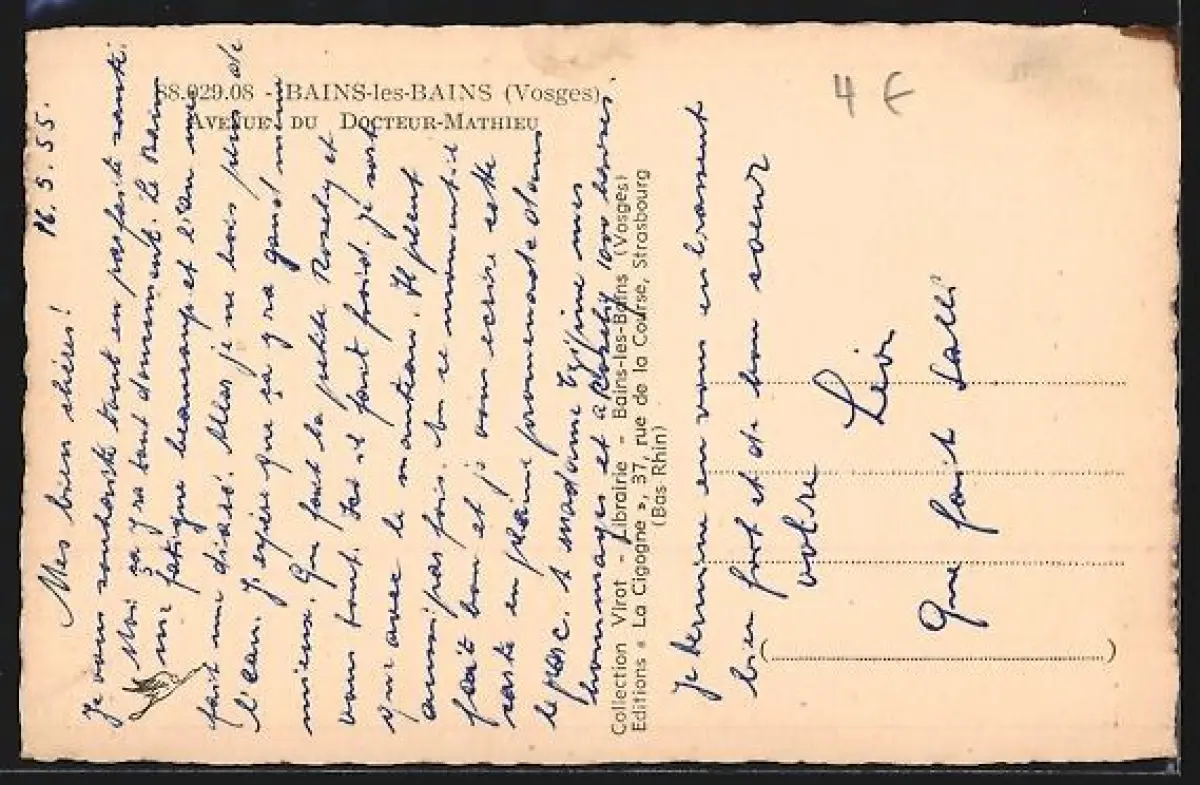 88.029.08 - BAINS-les-BAINS (Vosges)
AVENUE DU DOCTEUR-MATHIEU
4 €
16.5.55.
Mes bien chères!
Je vous souhaite tout en parfaite santé.
Moi ça y va tout doucement. Le Bain
me fatigue beaucoup et l'eau me
fait une diaré. Mais je ne bois plus de
l'eau. J'espère que ça y ra quand même
mieux. Que fait la petite Rosely et
vous tout. Ici il fait froid. Je sort
que avec le manteau. Il pleut
aussi parfois. En ce moment il
fait bon et je vous ecrire cette
carte en pleine promenade dans
le parc. A madame mes
hommages et a Rosely 1000 baises.
Collection Virot - Librairie - Bains-les-Bains (Vosges)
Editions « La Cigogne », 37, rue de la Course, Strasbourg
(Bas-Rhin)
Je termine en vous embrassent
bien fort et de bon soeur
votre
Léon
Que fait Salli